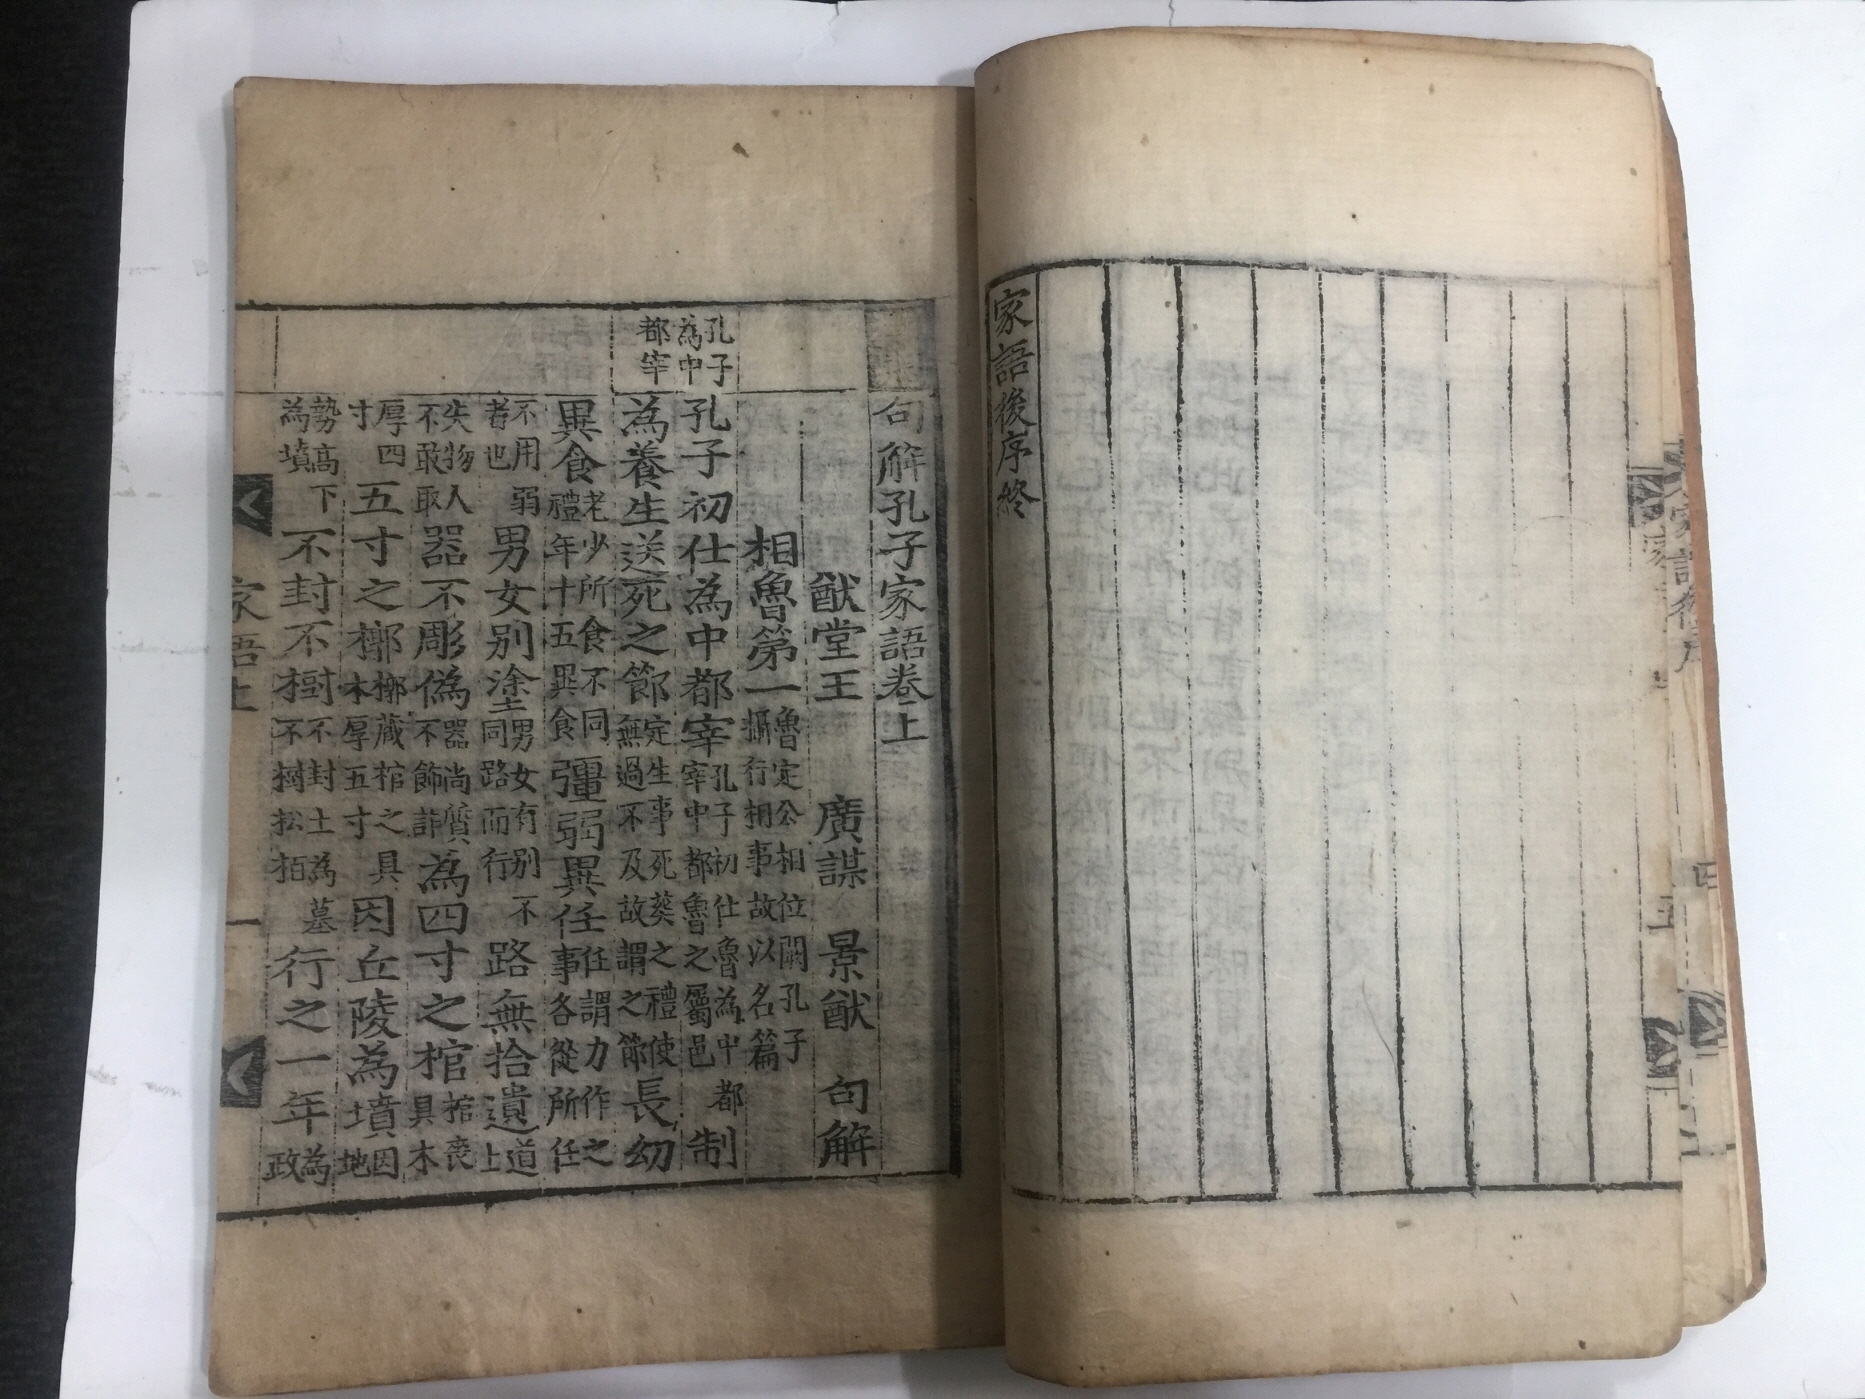 家語後序
四
五
家語後序終
句解孔子家語卷上
猷堂王 廣謀 景猷 句解
相魯第一 魯定公相位闕孔子攝行相事故以名篇
孔子為中都宰
孔子初仕為中都宰 孔子初仕魯為中都宰中都魯之屬邑 制
為養生送死之節 定生事死葬之禮使無過不及故謂之節 長幼
異食 老少所食不同禮年十五異食 彊弱異任 任謂力作之事各從所任
不用弱者也 男女別塗 男女有別不同路而行 路無拾遺 道上
失物人不敢取 器不彫偽 器尚質不飾詐 為四寸之棺 棺喪具木
厚四寸 五寸之槨 槨藏棺之具木厚五寸 因丘陵為墳 因地
勢高下為墳 不封不樹 不封土為墓不樹松栢 行之一年 為政
家語上
一